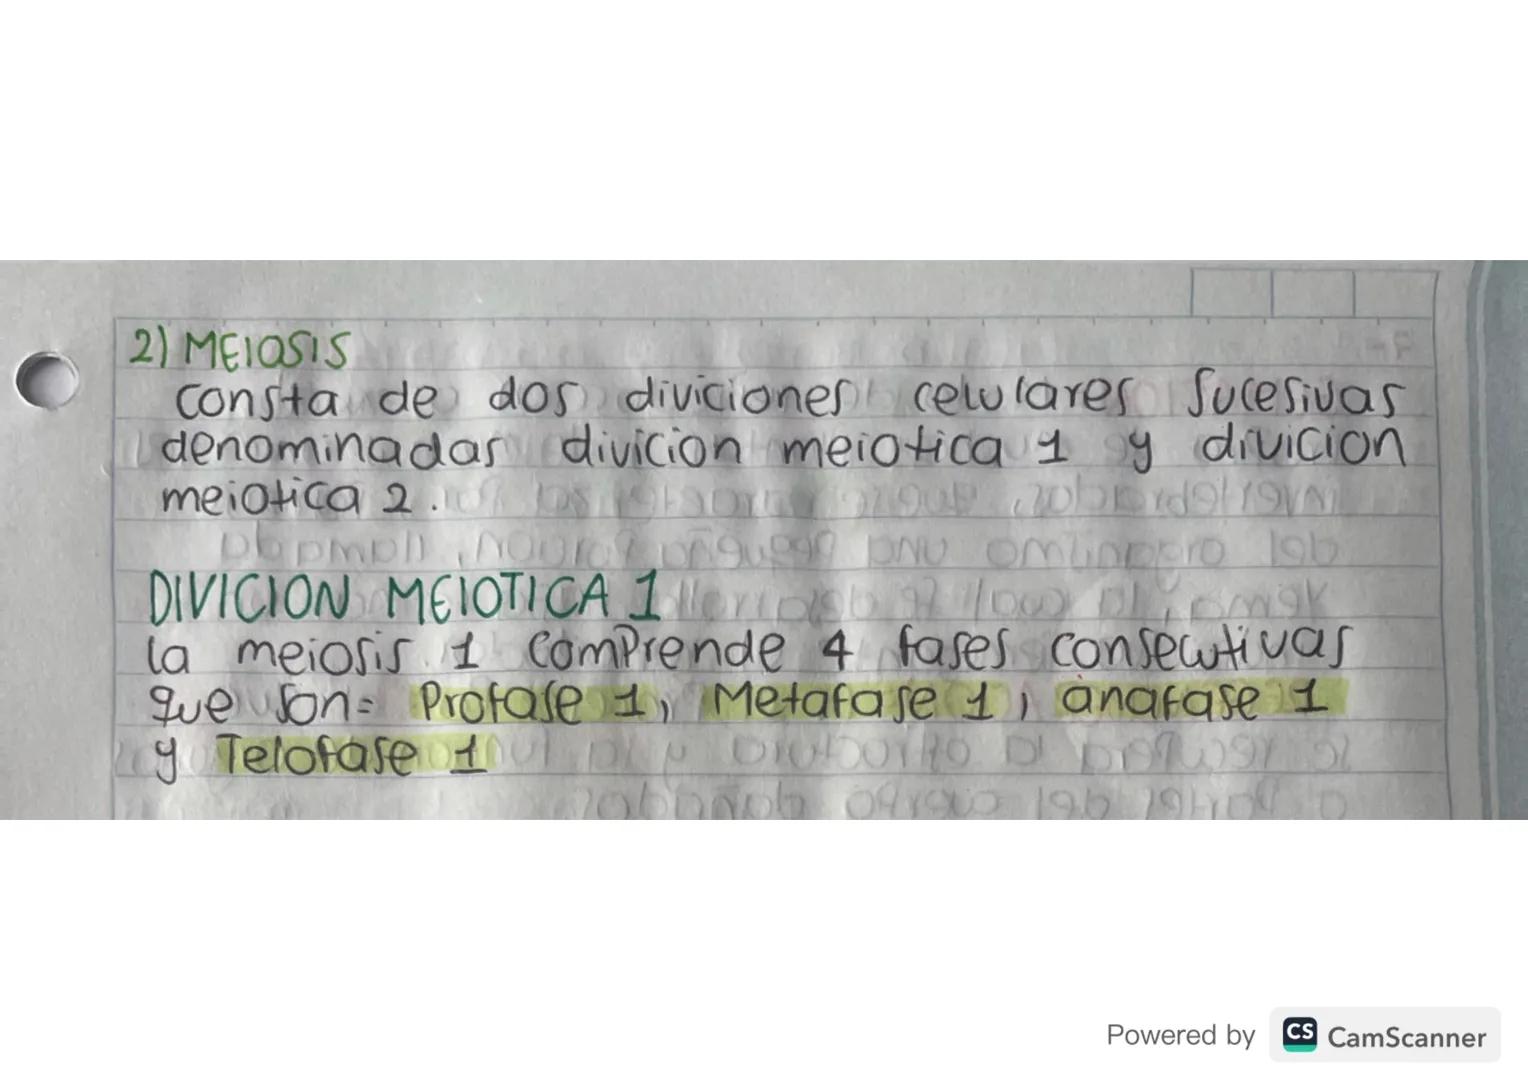 2) MEIOSIS
consta de dos diviciones celulares sucesivas
denominadas divicion meiotica 1 y divicion
meiotica 2.
DIVICION MEIOTICA 1
la meiosis 1 comprende 4 fases consecutivas
que son= Profase 1, Metafase 1, anafase 1
y Telofase 1
Powered by CS CamScanner